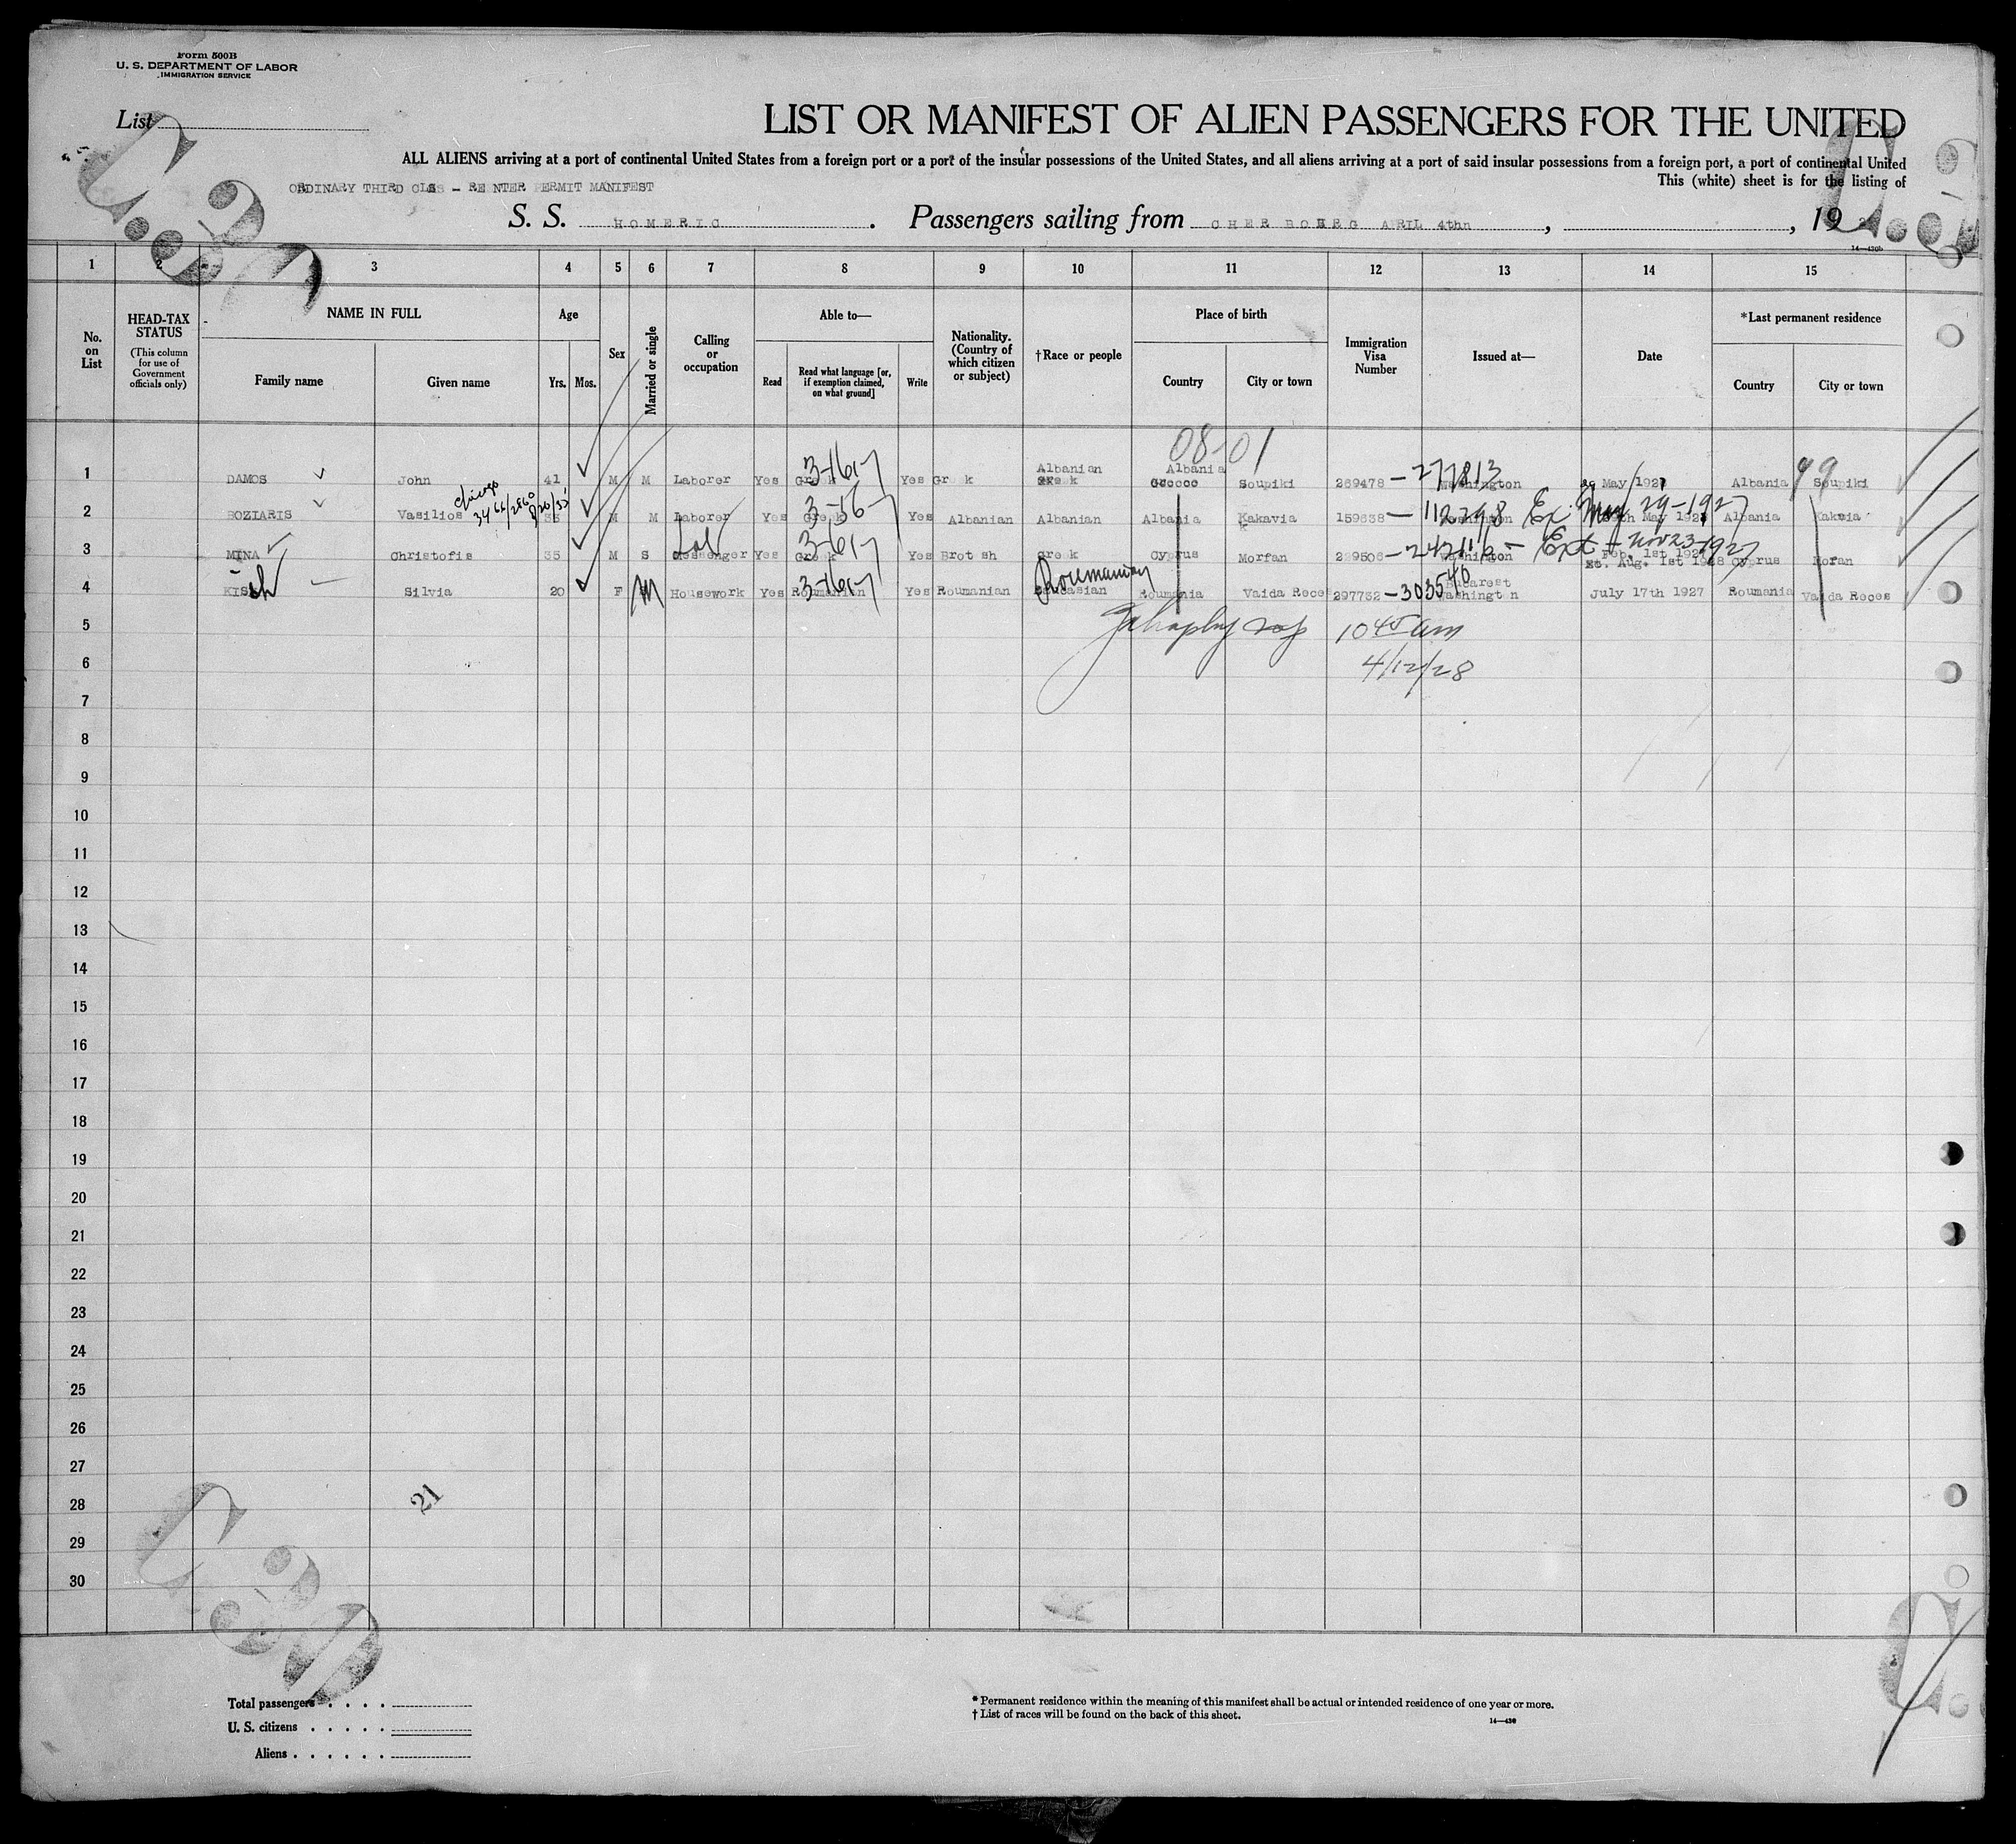 Form 500B
U. S. DEPARTMENT OF LABOR
IMMIGRATION SERVICE
List
LIST OR MANIFEST OF ALIEN PASSENGERS FOR THE UNITED
ALL ALIENS arriving at a port of continental United States from a foreign port or a port of the insular possessions of the United States, and all aliens arriving at a port of said insular possessions from a foreign port, a port of continental United
This (white) sheet is for the listing of
ORDINARY THIRD CLSS - RE NTER PERMIT MANIFEST
S. S. HOMERIC. Passengers sailing from CHER BOURG APRIL 4thn, , 19
14-430b
1 2 3 4 5 6 7 8 9 10 11 12 13 14 15
No. on List
HEAD-TAX STATUS
(This column for use of Government officials only)
NAME IN FULL
Family name Given name
Age
Yrs. Mos.
Sex
Married or single
Calling or occupation
Able to—
Read
Read what language [or, if exemption claimed, on what ground]
Write
Nationality. (Country of which citizen or subject)
†Race or people
Place of birth
Country City or town
Immigration Visa Number
Issued at—
Date
*Last permanent residence
Country City or town
08-01
1 DAMOS John 41 M M Laborer Yes Greek 3-1617 Yes Gr k Albanian Albania Soupiki 269478 - 277813 Washington May 1927 Albania Soupiki 99
2 BOZIARIS Vasilios M M Laborer Yes Greek Yes Albanian Albanian Albania Kakavia 159638 - 112298 Ex. May 29-1927 Albania Kakvia
3 MINA Christofis 35 M S Messenger Lab Yes Greek Yes Brot sh Greek Cyprus Morfan 229506 - 242116 - Ext - Nov 23-1927 Washington Feb. 1st 1927 Ext. Aug. 1st 1928 Cyprus Mofan
4 Silvia 20 F M Housework Yes Roumanian 3-1617 Yes Roumanian Roumanian Roumania Vaida Rece 297732 - 303540 Bucarest Washingt n July 17th 1927 Roumania Vaida Reces
5
10 45 am
6
4/12/28
7
8
9
10
11
12
13
14
15
16
17
18
19
20
21
22
23
24
25
26
27
28
29
30
21
Total passengers . . . .
U. S. citizens . . . . .
Aliens . . . . . .
* Permanent residence within the meaning of this manifest shall be actual or intended residence of one year or more.
† List of races will be found on the back of this sheet.
14-430